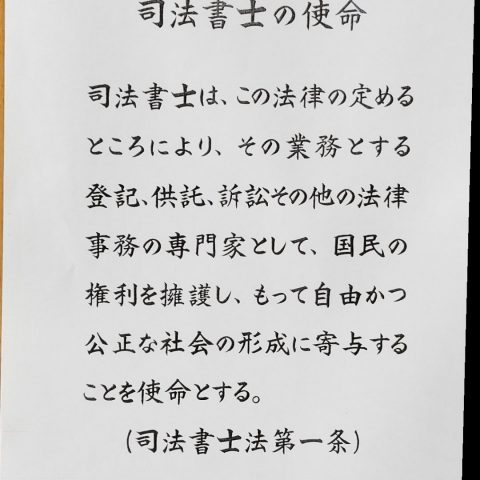 司法書士の使命
司法書士は、この法律の定める
ところにより、その業務とする
登記、供託、訴訟その他の法律
事務の専門家として、国民の
権利を擁護し、もって自由かつ
公正な社会の形成に寄与する
ことを使命とする。
(司法書士法第一条)